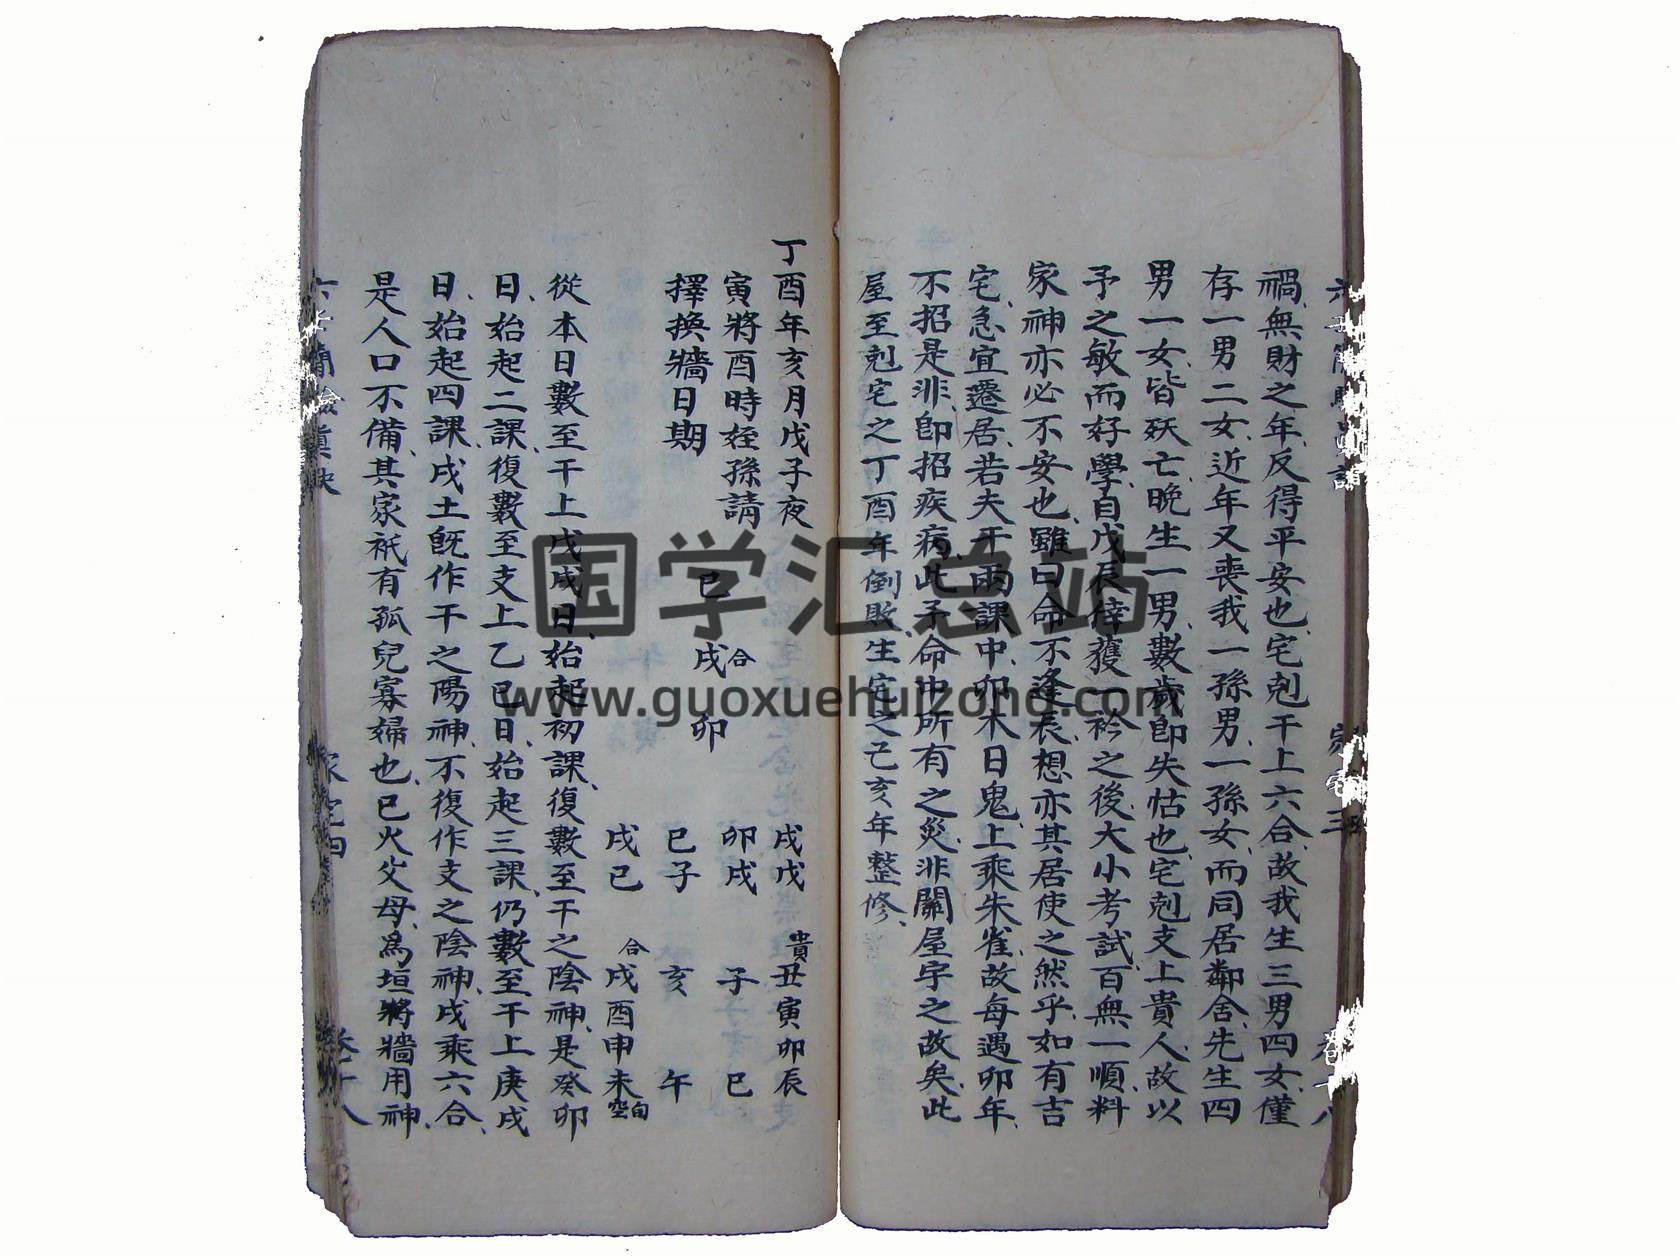 禍、無財之年、反得平安也、宅剋干上六合、故我生三男四女、僅
存一男二女、近年又喪我一孫男、一孫女、而同居鄰舍、先生四
男一女、皆殀亡、晚生一男、數歲即失怙也、宅剋支上貴人、故以
予之敏而好學、自戊辰倖獲一衿之後、大小考試、百無一順、料
家神亦必不安也、雖曰命不逢辰、想亦其居使之然乎、如有吉
宅、急宜遷居、若夫干兩課中、卯木日鬼、上乘朱雀、故每遇卯年、
不招是非、即招疾病、此予命中所有之災、非關屋宇之故矣、此
屋至剋宅之丁酉年倒敗、生宅之己亥年整修、
丁酉年亥月戊子夜
寅將酉時姪孫請
擇換牆日期
巳
戌合
卯
戌戊
卯戌
巳子
戌巳
貴丑寅卯辰
子 巳
亥 午
合戌酉申未旬空
從本日數至干上戌、戌日、始起初課、復數至干之陰神、是癸卯
日、始起二課、復數至支上乙巳日、始起三課、仍數至干上庚戌
日、始起四課、戌土既作干之陽神、不復作支之陰神、戌乘六合、
是人口不備、其家祇有孤兒寡婦也、巳火父母、為垣將牆用神、
家宅四
卷十八
国学汇总站
www.guoxuehuizong.com